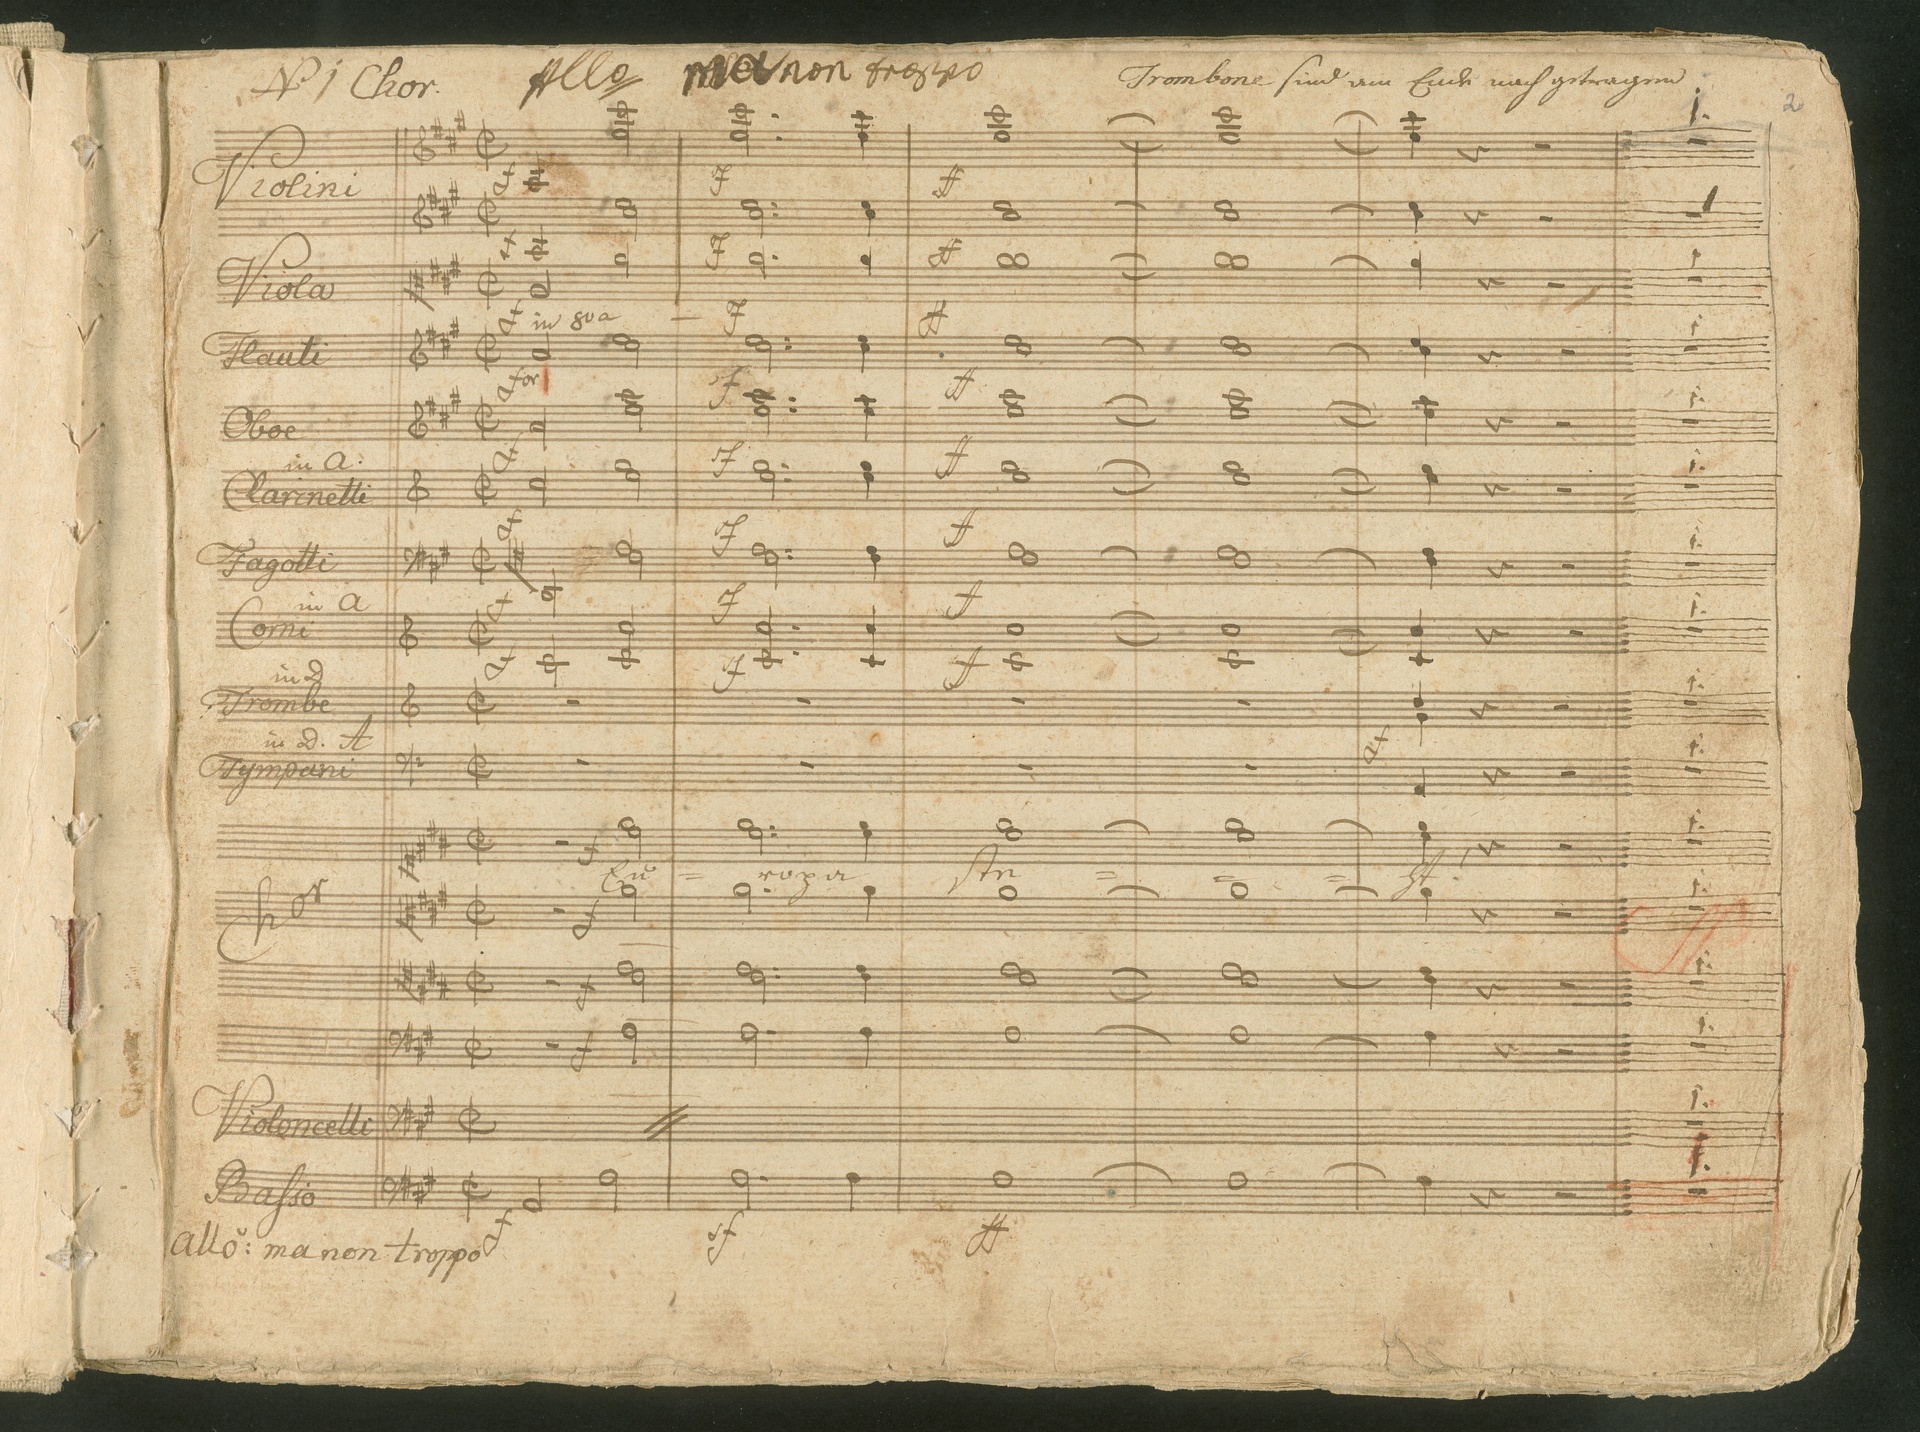 N. 1 Chor. Allo ma non troppo Trombone sind am Ende nach getragen
2
Violini
Viola
in 8va
Flauti
for
Oboe
in A:
Clarinetti
Fagotti
in A
Corni
in D
Trombe
in D. A
Tympani
Eu = ropa ste = = = ht!
Chor
Violoncelli
Basso
allo: ma non troppo